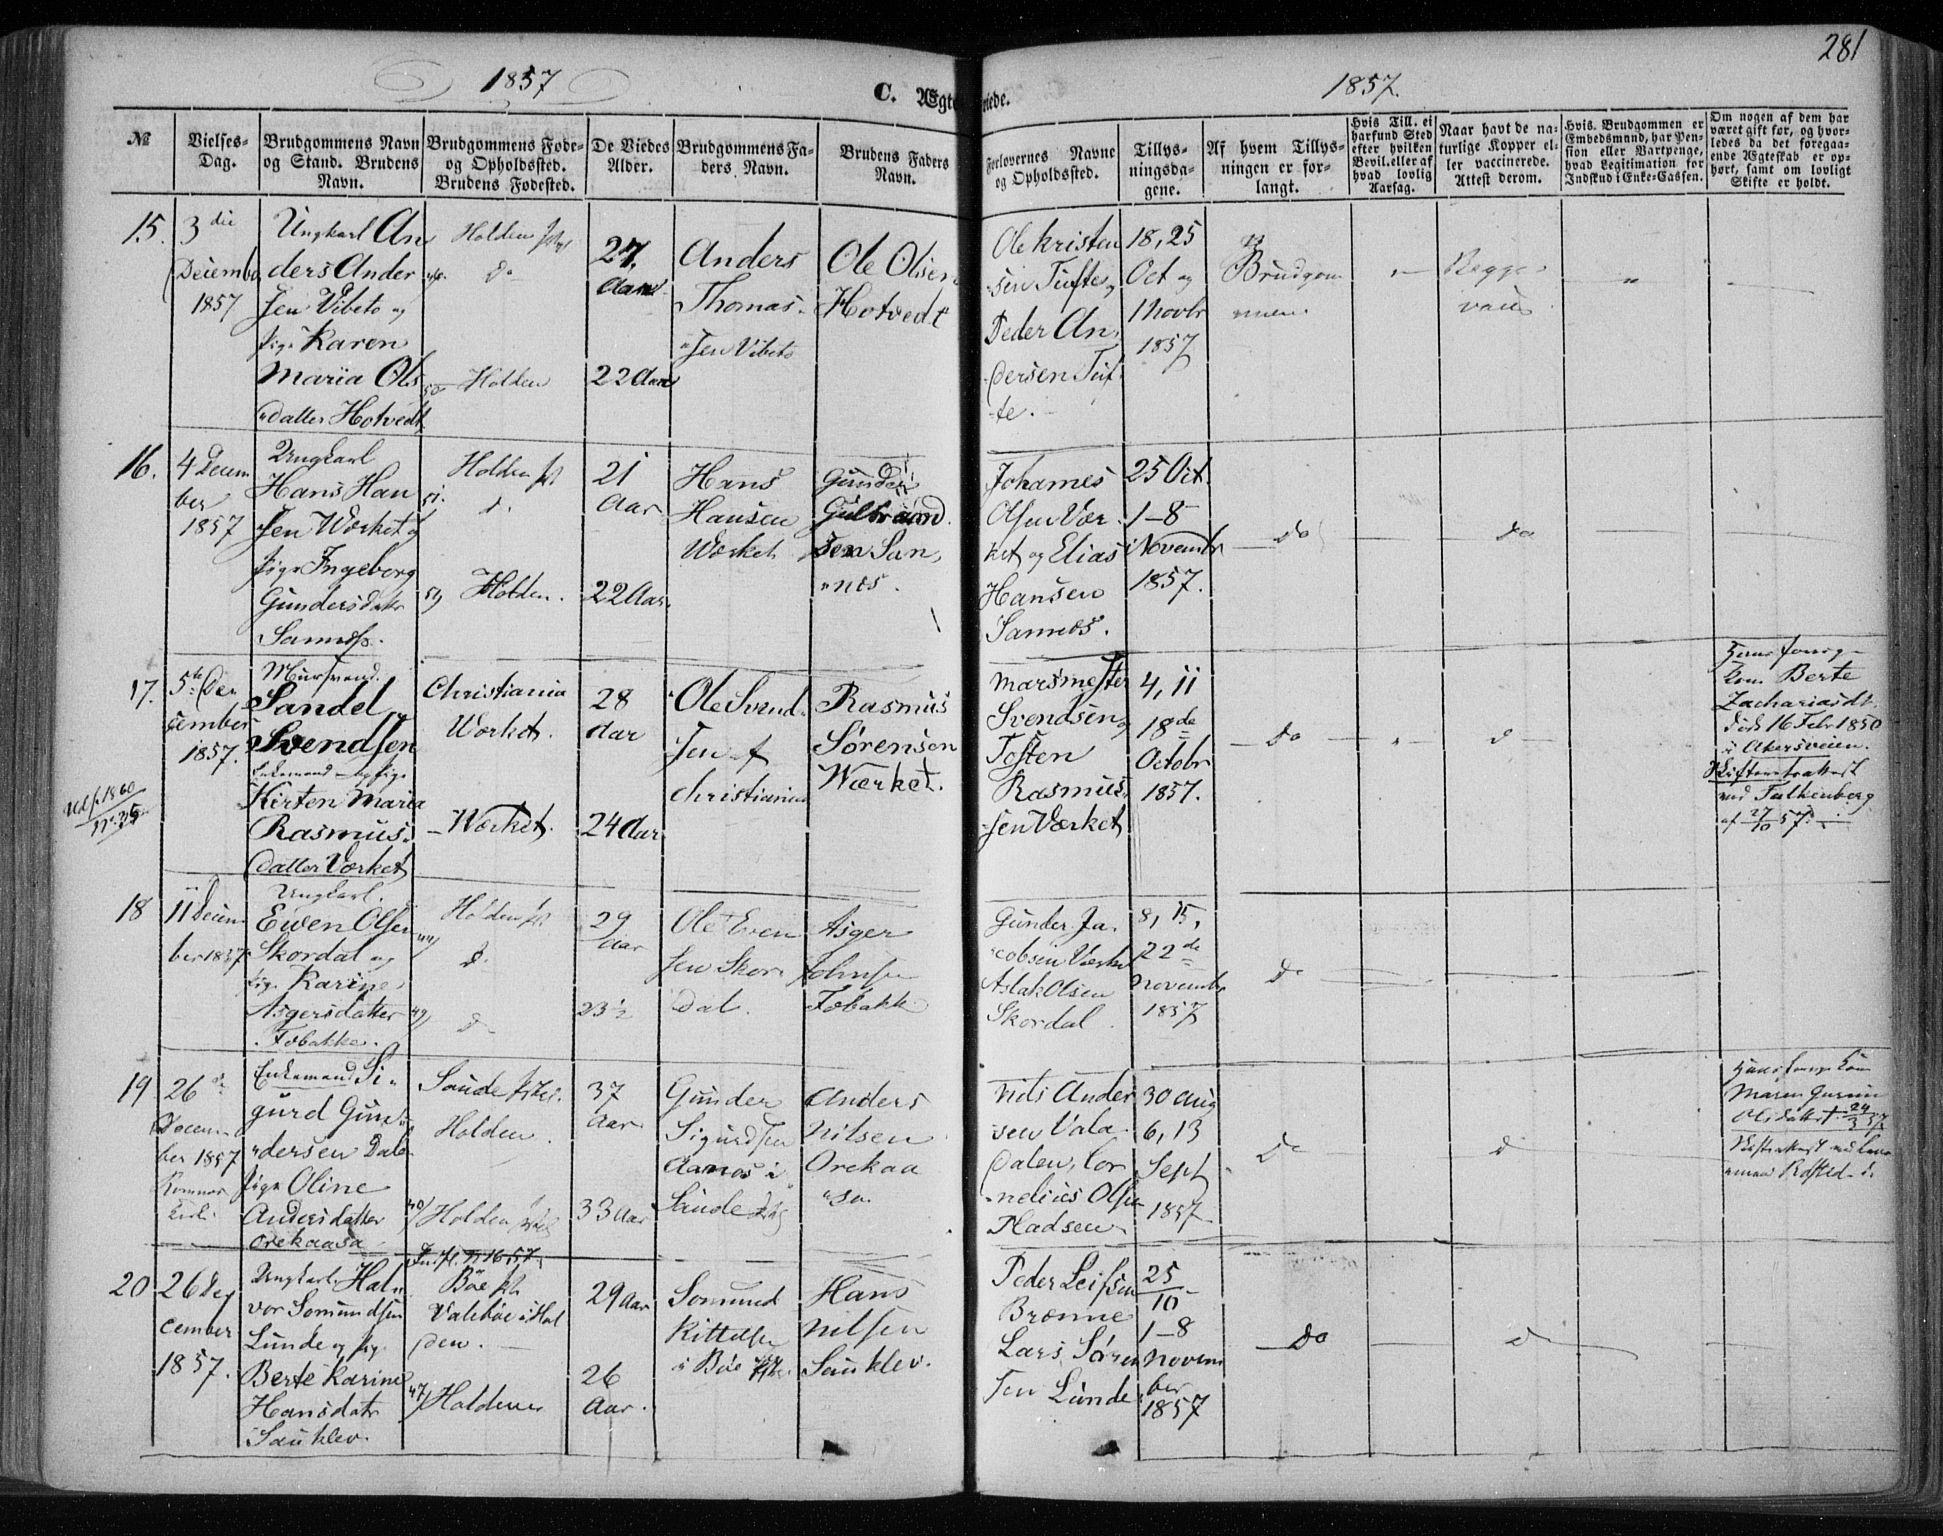 281
1857
1857.
C. Ægteviede.
No
Vielses-
Dag.
Brudgommens Navn
og Stand. Brudens
Navn.
Brudgommens Føde-
og Opholdssted.
Brudens Fødested.
De Viedes
Alder.
Brudgommens Fa-
ders Navn.
Brudens Faders
Navn.
Forlovernes Navne
og Opholdssted.
Tillys-
ningsda-
gene.
Af hvem Tillys-
ningen er for-
langt.
Hvis Till. ei
harfund Sted
efter hvilken
Bevil.eller af
hvad lovlig
Aarsag.
Naar havt de na-
turlige Kopper el-
ler vaccinerede.
Attest derom.
Hvis. Brudgommen er
Embedsmand, har Pen-
sion eller Vartpenge,
hvad Legitimation for
Indskud i Enke-Cassen.
Om nogen af dem har
været gift før, og hvor-
ledes da det foregaa-
ende Ægteskab er op-
hørt, samt om lovligt
Skifte er holdt.
15.
3 die
Decemb
1857
Ungkarl An
ders Ander
sen Vibeto og
pige Karen
Maria Ols
datter Hotvedt
Holden
do
50 Holden
27
Aar
22 Aar
Anders
Thomas
sen Vibeto
Ole Olsen
Hotvedt
Ole Kristen
sen Tufte og
Peder An
dersen Tuf
te.
18, 25
Oct og
1 Novbr
1857
Brudgom
men
Begge
vacc
16.
4 Decem
ber
1857
Ungkarl
Hans Han
sen Værket og
pige Ingeborg
Gundersdatr
Sannes.
Holden
51. d.
Holden.
21
Aar
22 Aar.
Hans
Hansen
Værket
Gunder
Gulbrand
sen San
nes.
Johannes
Olsen Vær
ket og Elias
Hansen
Sannes.
25 Oct.
1-8
Novembr
1857.
Do
Do
17.
5te De
cember
1857.
Udf. 1860
No. 35
Murmand
Sandel
Svendsen
Enkemand og pige
Kirsten Maria
Rasmus
datter Værket
Christiania
Værket.
Værket.
28
Aar
24 Aar
Ole Svend
sen af
Christiania
Rasmus
Sørensen
Værket.
Marsmester
Svendsen og
Tosten
Rasmus
sen Værket
4, 11
18de
Octobr
1857.
Do
d
Hans foreg
kone Berte
Zachariasdt.
døde 16 Febr 1850
i Akersveien.
Skifteattest
ved Falkenberg
af 27/10 57.
18
11 Decem
ber 1857
Ungkarl.
Ewen Olsen
Skordal og
pige Karine
Asgersdatter
Tobakke.
Holden
44 d.
49 d
29
Aar
23½
Ole Even
sen Skor
dal.
Asger
Johnsen
Tobakk
Gunder Ja
cobsen Værket
Aslak Olsen
Skordal.
8, 15,
22de
Novembr
1857
Do
19
26de
Decem
ber 1857
Romnæs
Kirke
Enkemand Si
gurd Gun
dersen Dale
pige Oline
Andersdatter
Orekaasa
Saude
Holden.
40 Holden
37
Aar
33 Aar
Gunder
Sigurdsen
Aanæs i
Saude
Anders
Nilsen
Orekaa
sa
Nils Ander
sen Vala
dalen, Cor
nelius Olsen
Pladsen
30 Aug
6, 13
Sept
1857
Do
d
Hans forrige kone
Maren
Olsdatter † 24/3 57
Skifteattest ved
20
26 De
cember
1857.
Ungkarl Hal
vor Somundsen
Lunde og pige
Berte Karine
Hansdatr
Sauklev.
Bøe
Valebøe i Hol
den.
47 Holden
29 Aar
26
Aar.
Somund
Kittelsen
i Bøe
Hans
Nilsen
Sauklev.
Peder Leifsen
Brænne
Lars Søren
sen Lunde
25/10
1-8
Novem
ber
1857
Do
d